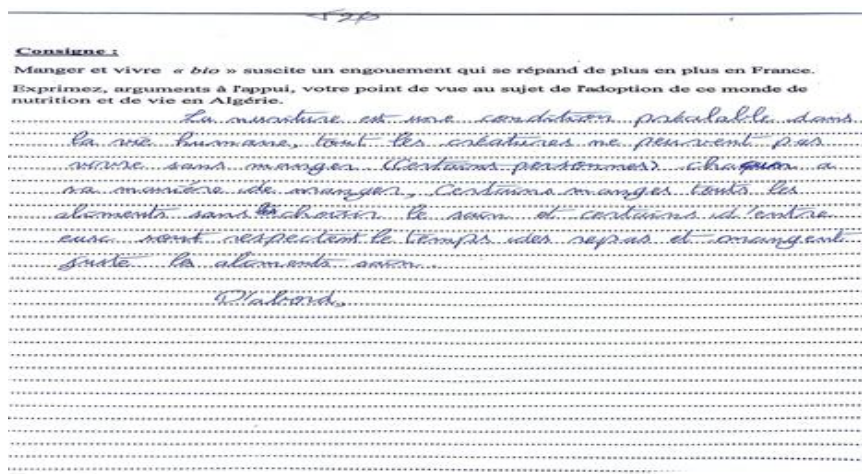 Consigne :
Manger et vivre « bio » suscite un engouement qui se répand de plus en plus en France.
Exprimez, arguments à l'appui, votre point de vue au sujet de l'adoption de ce monde de
nutrition et de vie en Algérie.
La nurriture est une condition préalable dans
la vie humane, tout les créatures ne peuvent pas
vivre sans manger (Certains personnes) chaqun a
sa maniére de manger, Certains manges touts les
aloments sans choisir le sain et certains d'entre
eux sont respectent le temps des repas et mangent
juste les aloments sain.
D'abord,